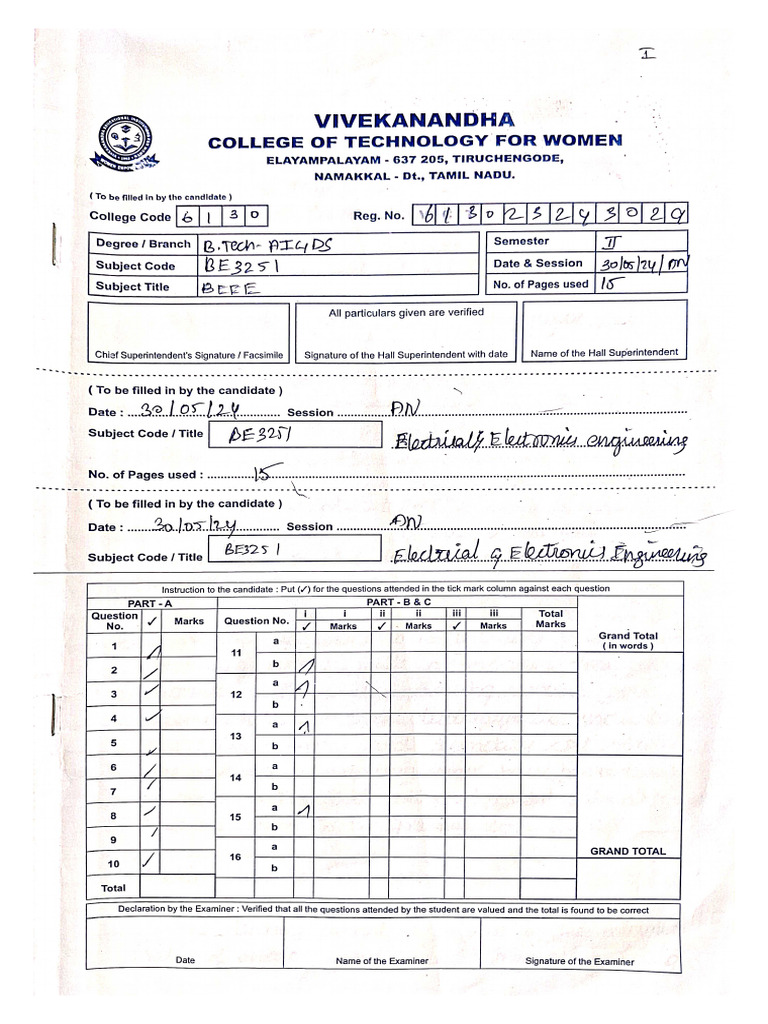 I
VIVEKANANDHA
COLLEGE OF TECHNOLOGY FOR WOMEN
ELAYAMPALAYAM - 637 205, TIRUCHENGODE,
NAMAKKAL - Dt., TAMIL NADU.
( To be filled in by the candidate )
College Code 6 1 3 0 Reg. No. 6 1 3 0 2 3 2 4 3 0 2 9
Degree / Branch B.Tech- AI&DS Semester II
Subject Code BE3251 Date & Session 30/05/24/AN
Subject Title BEEE No. of Pages used 15
All particulars given are verified
Chief Superintendent's Signature / Facsimile Signature of the Hall Superintendent with date Name of the Hall Superintendent
( To be filled in by the candidate )
Date : 30/05/24 Session AN
Subject Code / Title BE3251 Electrical & Electronics engineering
No. of Pages used : 15
( To be filled in by the candidate )
Date : 30/05/24 Session AN
Subject Code / Title BE3251 Electrial & Electronics Engineering
Instruction to the candidate : Put (✓) for the questions attended in the tick mark column against each question
PART - A PART - B & C
Question No. ✓ Marks Question No. i ✓ i Marks ii ✓ ii Marks iii ✓ iii Marks Total Marks Grand Total ( in words )
1 ✓ 11 a
2 ✓ b ✓
3 ✓ 12 a ✓
4 ✓ b
5 ✓ 13 a ✓
b
6 ✓ 14 a
7 ✓ b
8 ✓ 15 a ✓
9 ✓ b
10 ✓ 16 a GRAND TOTAL
b
Total
Declaration by the Examiner : Verified that all the questions attended by the student are valued and the total is found to be correct
Date Name of the Examiner Signature of the Examiner